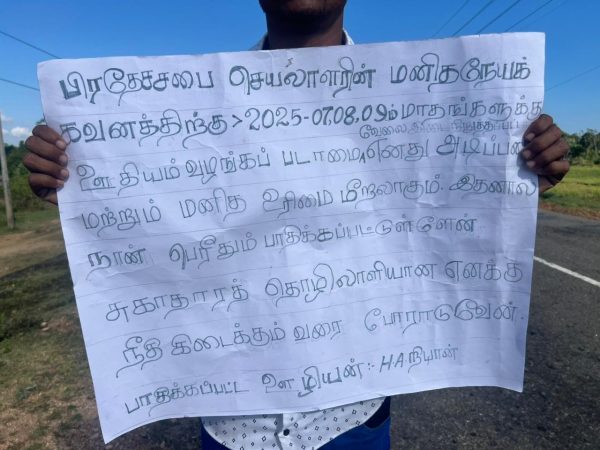 பிரதேச்சபை செயலாளரின் மனிதநேயக்
கவனத்திற்கு > 2025-07.08.09ம் மாதங்களுக்கு
வேலை
ஊதியம் வழங்கப் படாமை, எனது அடிப்படை
மற்றும் மனித உரிமை மீறலாகும். இதனால்
நான் பெரிதும் பாதிக்கப்பட்டுள்ளேன்
சுகாதாரத் தொழிலாளியான எனக்கு
நீதி கிடைக்கும் வரை போராடுவேன்.
பாதிக்கப்பட்ட ஊழியன் :- HA நிபான்